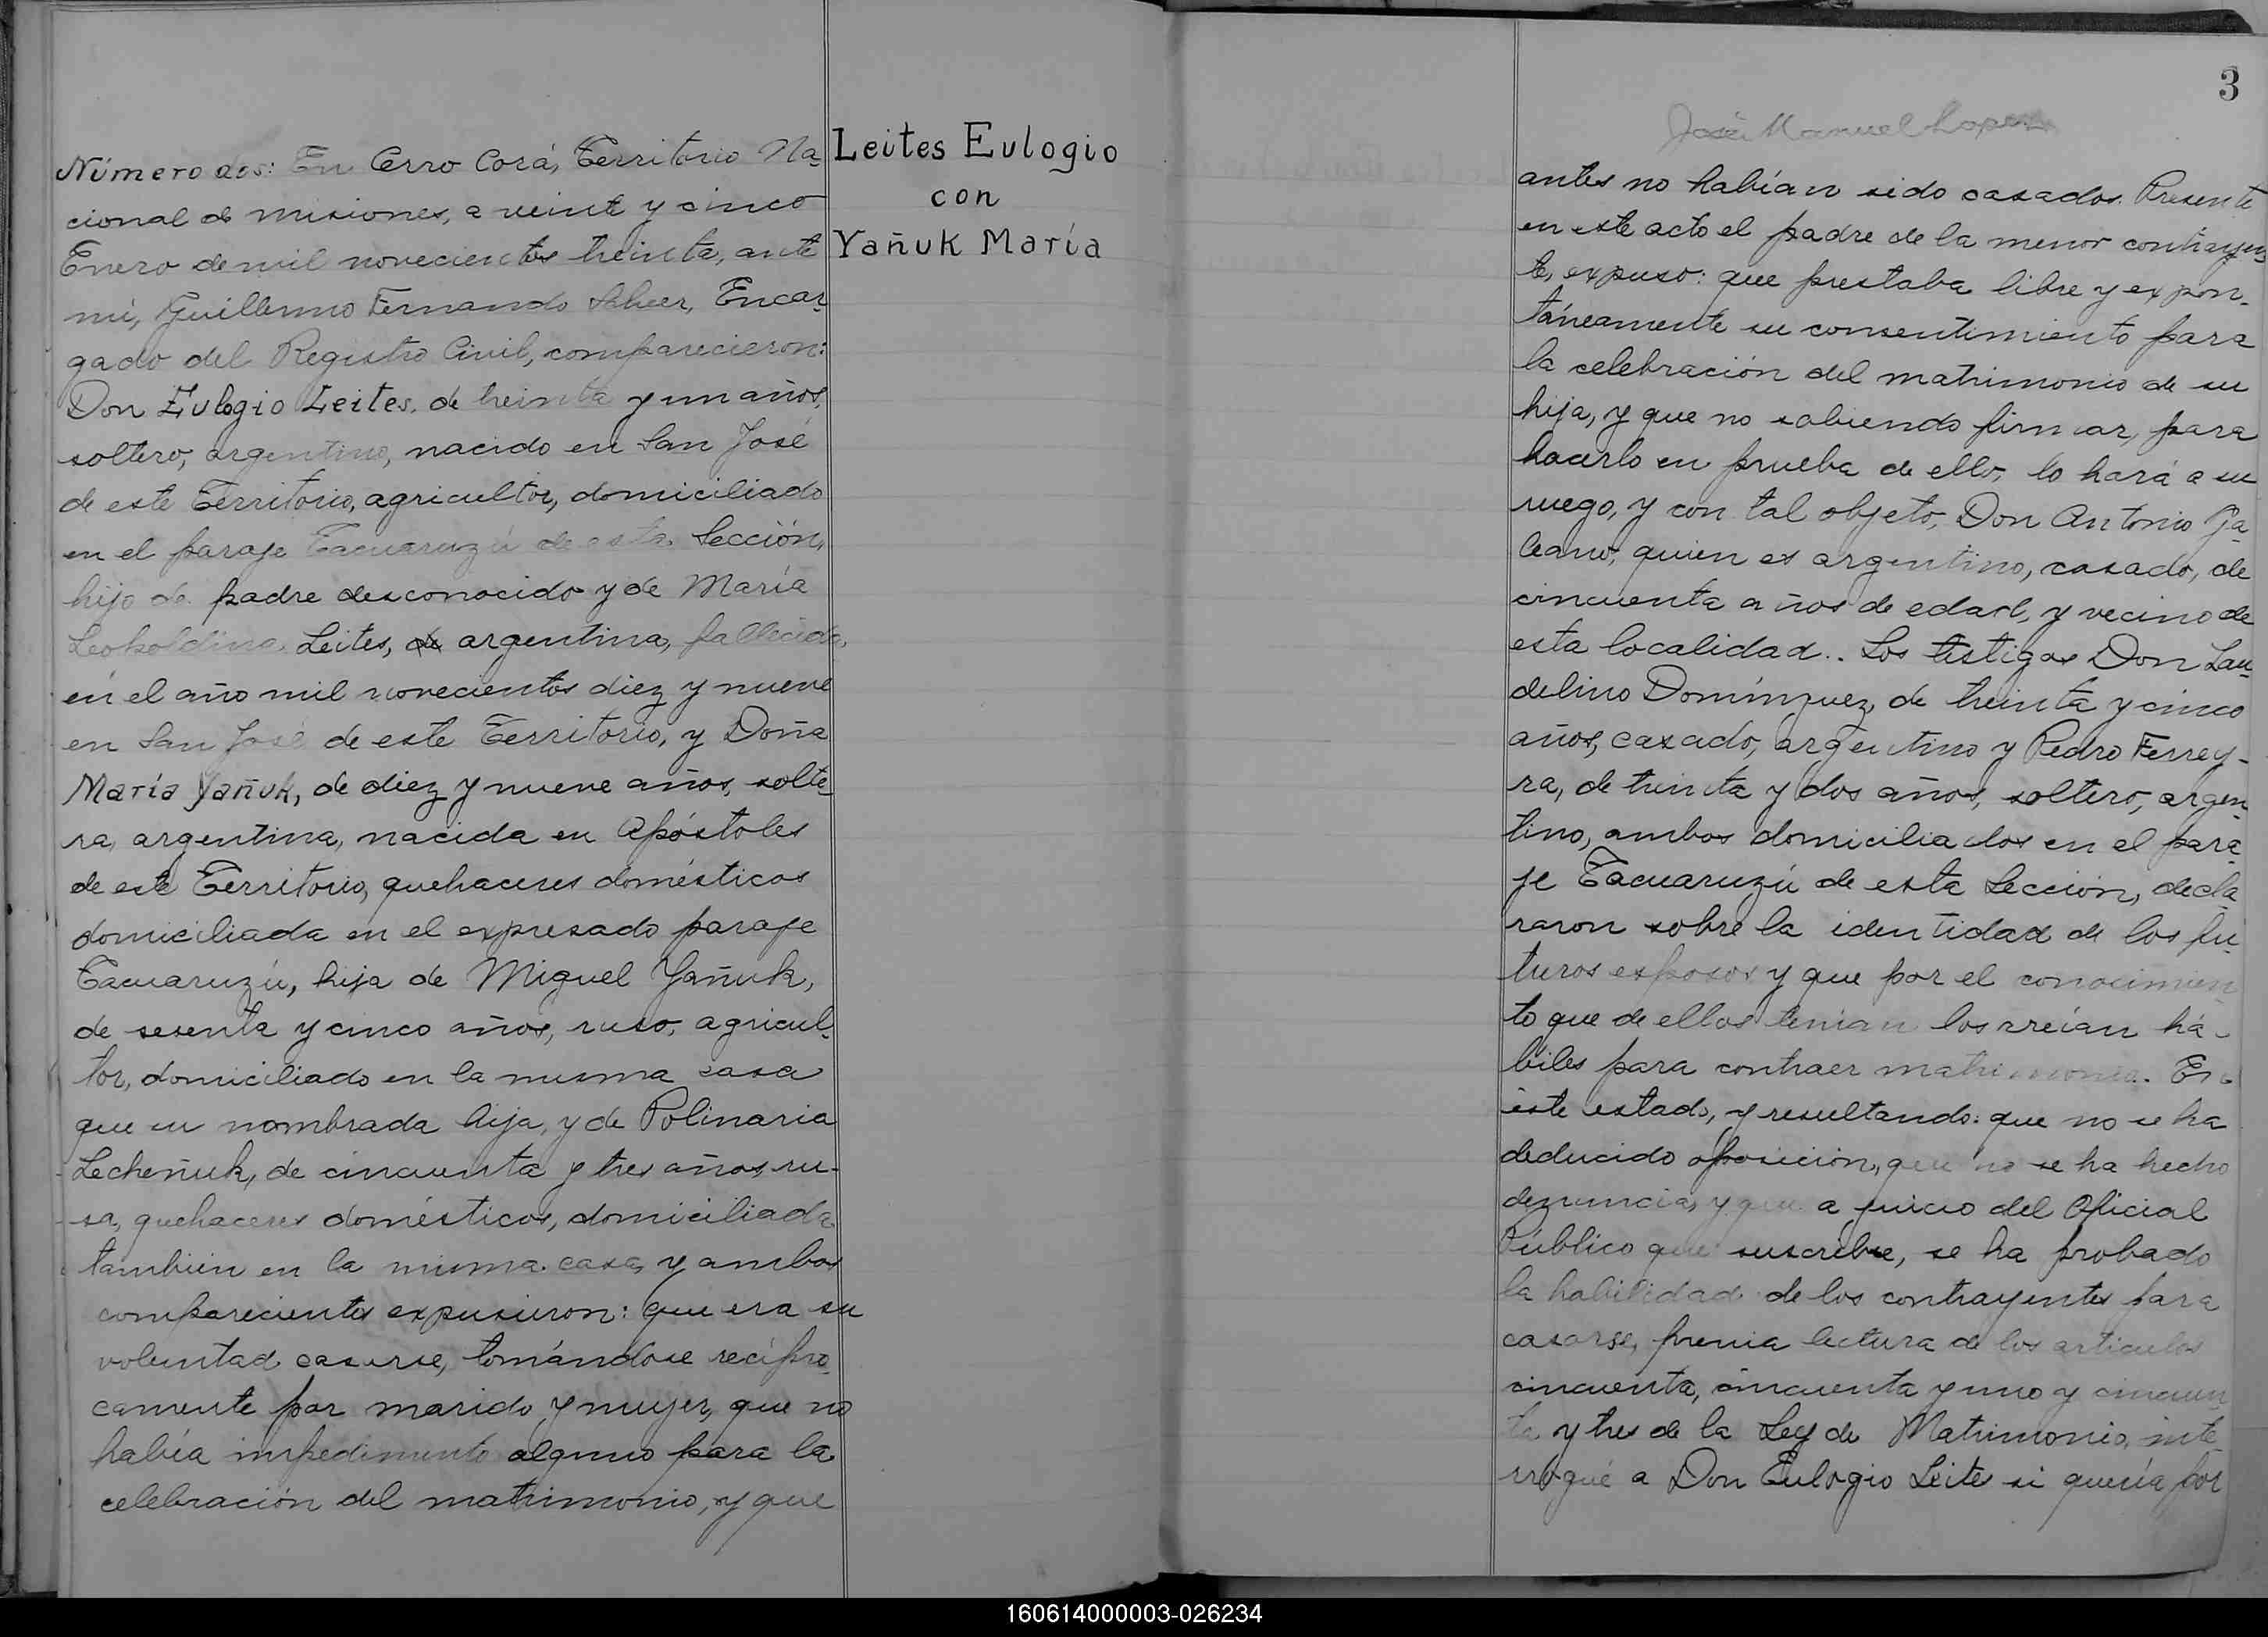 Número dos: En Cerro Corá, Territorio Na-
cional de Misiones, a veinte y cinco
Enero de mil novecientos treinta, ante
mí, Guillermo Fernando Scheer, Encar-
gado del Registro Civil, comparecieron:
Don Eulogio Leites, de treinta y un años,
soltero, argentino, nacido en San José
de este Territorio, agricultor, domiciliado
en el paraje Tacuaruzú de esta Sección,
hijo de padre desconocido y de María
Leopoldina Leites, argentina, fallecida,
en el año mil novecientos diez y nueve
en San José de este Territorio, y Doña
María Yañuk, de diez y nueve años, solte-
ra, argentina, nacida en Apóstoles
de este Territorio, quehaceres domésticos
domiciliada en el expresado paraje
Tacuaruzú, hija de Miguel Yañuk,
de sesenta y cinco años, ruso, agricul-
tor, domiciliado en la misma casa
que su nombrada hija, y de Polinaria
Lecheñuk, de cincuenta y tres años, ru-
sa, quehaceres domésticos, domiciliada
también en la misma casa, y ambos
comparecientes expusieron: que era su
voluntad casarse, tomándose recípro-
camente por marido y mujer, que no
había impedimento alguno para la
celebración del matrimonio, y que
Leites Eulogio
con
Yañuk María
3
José Manuel Lopez
antes no habían sido casados. Presente
en este acto el padre de la menor contrayen-
te, expuso: que prestaba libre y expon-
táneamente su consentimiento para
la celebración del matrimonio de su
hija, y que no sabiendo firmar, para
hacerlo en prueba de ello, lo hará a su
ruego, y con tal objeto, Don Antonio Ga-
leano, quien es argentino, casado, de
cincuenta años de edad, y vecino de
esta localidad.. Los testigos Don Lau-
delino Domínguez, de treinta y cinco
años, casado, argentino y Pedro Ferrey-
ra, de treinta y dos años, soltero, argen-
tino, ambos domiciliados en el para-
je Tacuaruzú de esta Sección, decla-
raron sobre la identidad de los fu-
turos esposos y que por el conocimien-
to que de ellos tenían los creían há-
biles para contraer matrimonio. En
este estado, y resultando: que no se ha
deducido oposición, que no se ha hecho
denuncia, y que a juicio del Oficial
Público que suscribe, se ha probado
la habilidad de los contrayentes para
casarse, previa lectura de los artículos
cincuenta, cincuenta y uno y cincuen-
ta y tres de la Ley de Matrimonio, inte-
rrogué a Don Eulogio Leites si quería por
160614000003-026234